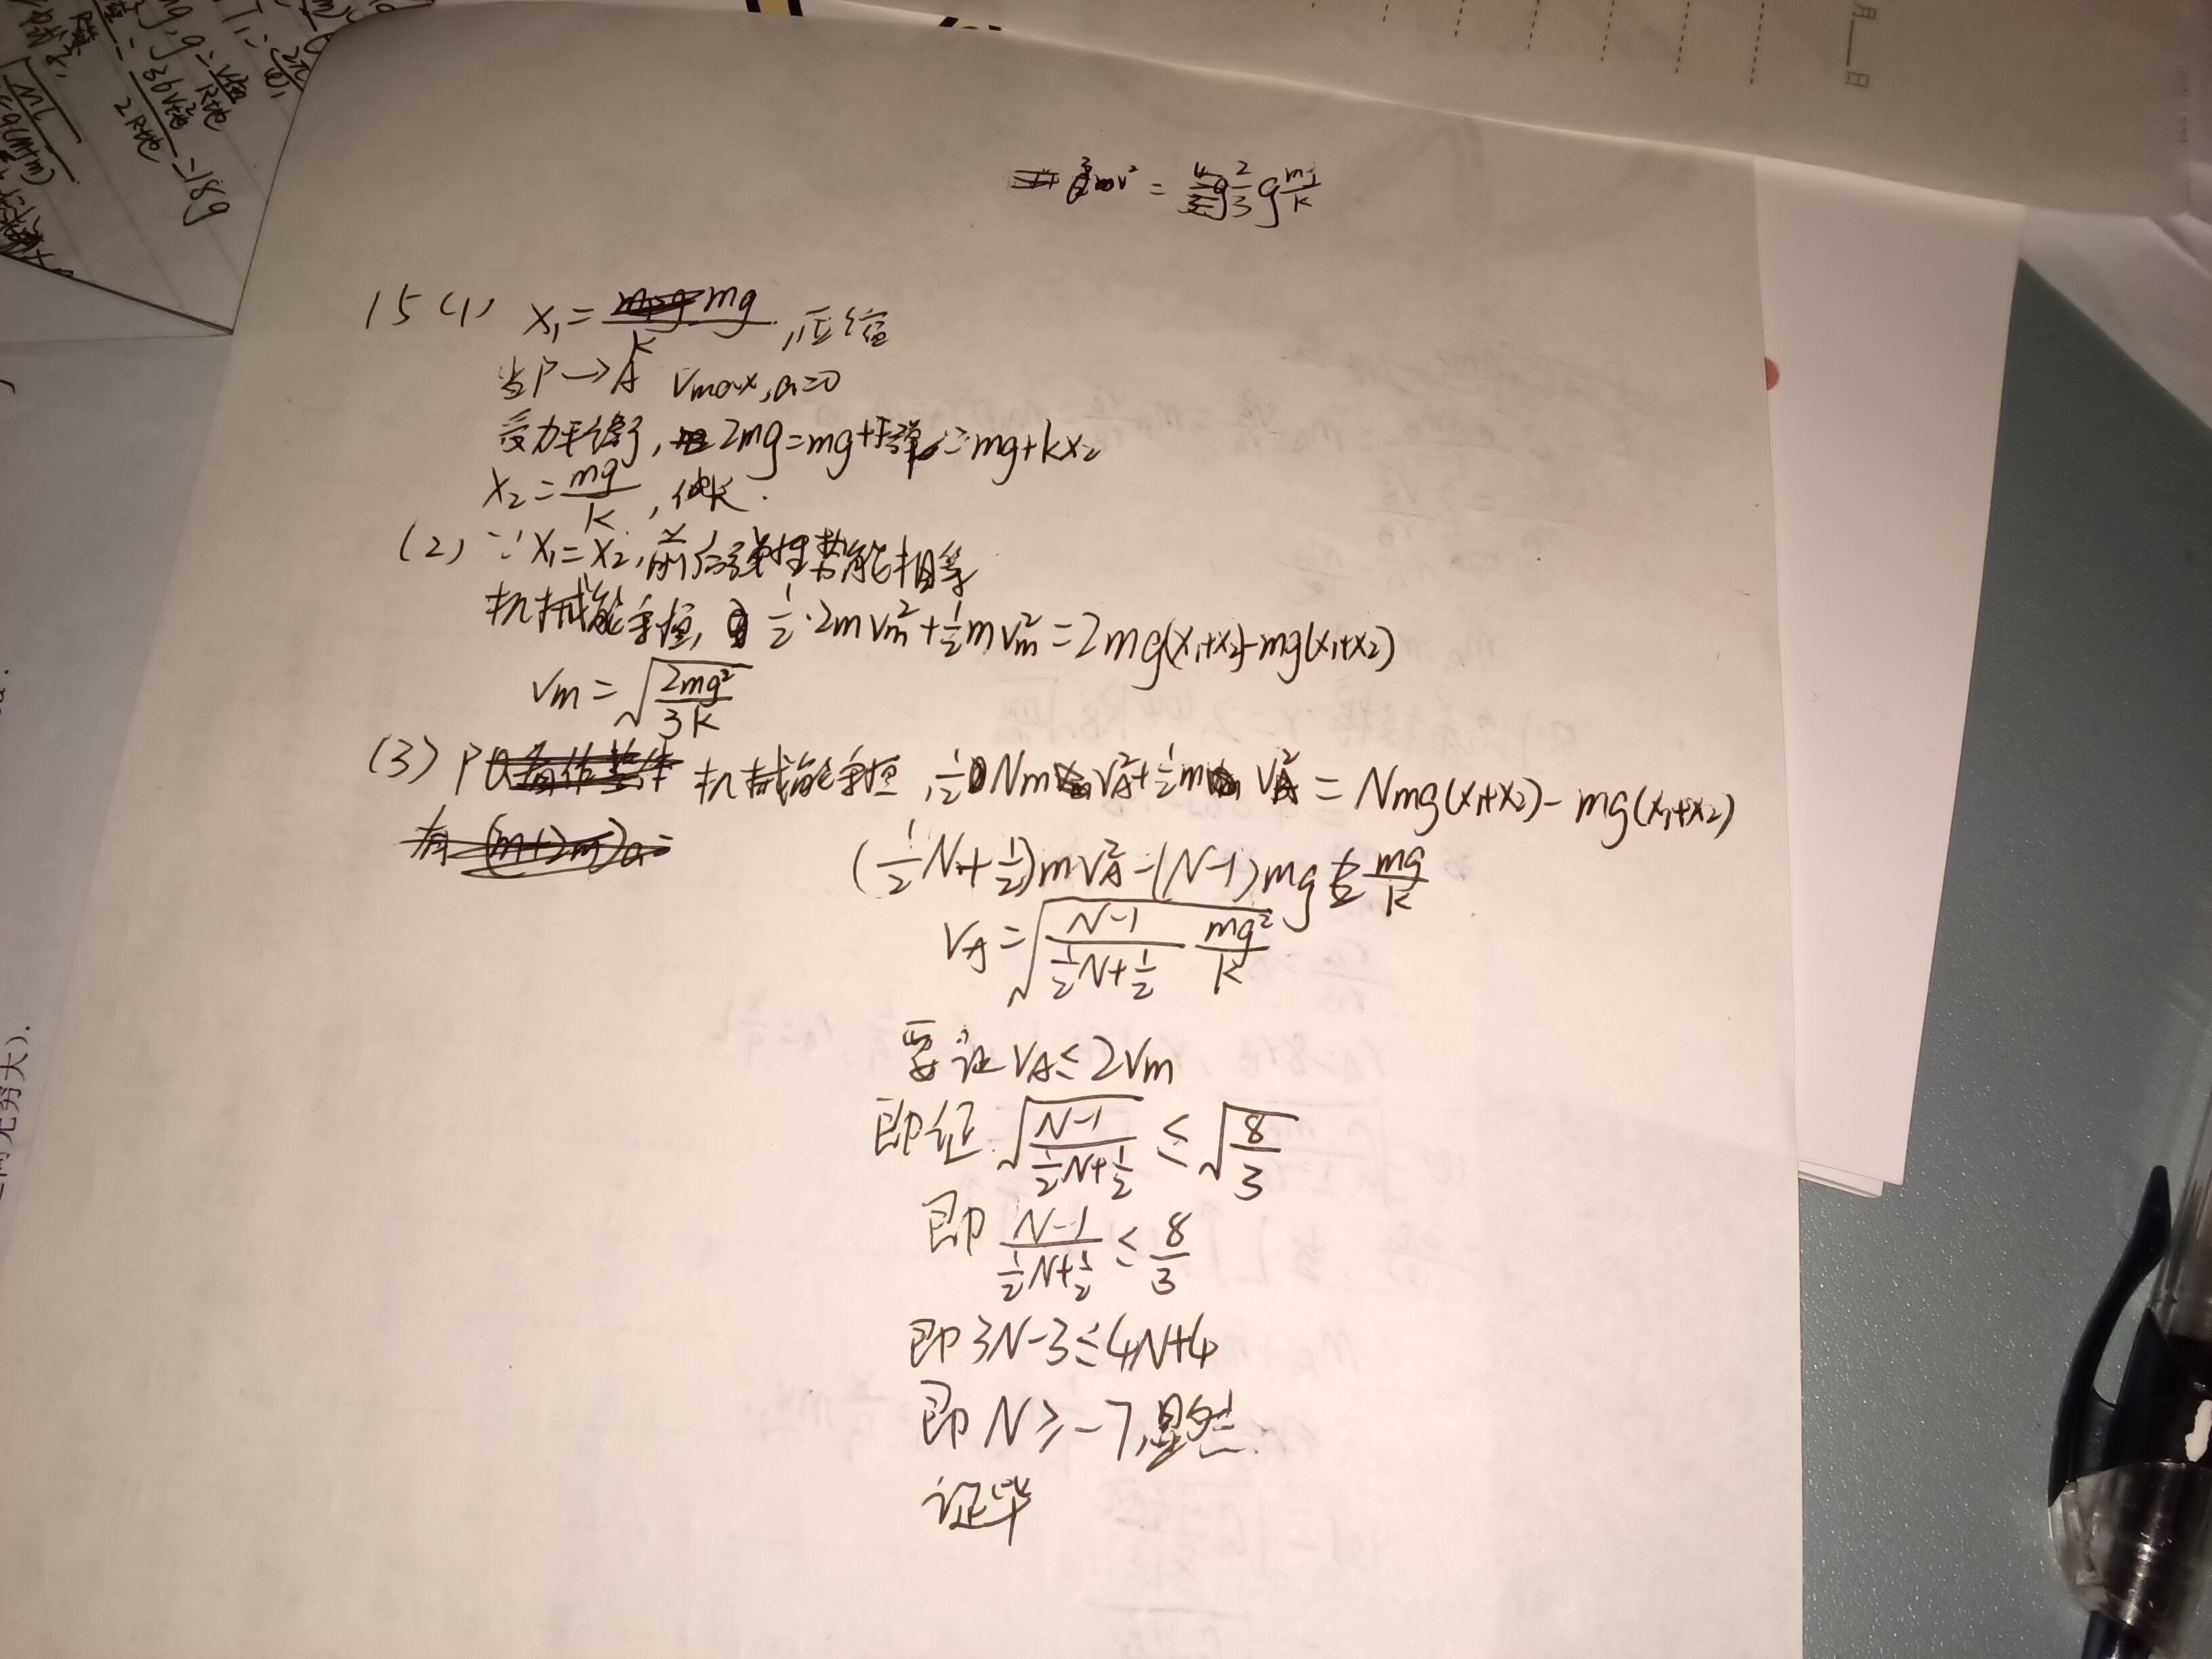 月__日
g=
=18g
mv² = 2/3 g
15 (1) x₁=mg/k, 压缩
当P→A Vmax, a=0
受力平衡, 2mg=mg+F弹=mg+kx₂
x₂=mg/k, 伸长.
(2) ∵x₁=x₂, 前后弹性势能相等
机械能守恒, 1/2·2mVm²+1/2mVm²=2mg(x₁+x₂)-mg(x₁+x₂)
Vm=√(2mg²/3k)
(3) P 机械能守恒, 1/2NmVA²+1/2mVA²=Nmg(x₁+x₂)-mg(x₁+x₂)
有 (m+2m)a=
(1/2N+1/2)mVA²=(N-1)mg mg/k
VA=√((N-1)/(1/2N+1/2) mg²/k)
要证 VA≤2Vm
即证 √((N-1)/(1/2N+1/2)) ≤ √(8/3)
即 (N-1)/(1/2N+1/2) ≤ 8/3
即 3N-3≤4N+4
即 N≥-7, 显然.
证毕
穷大).